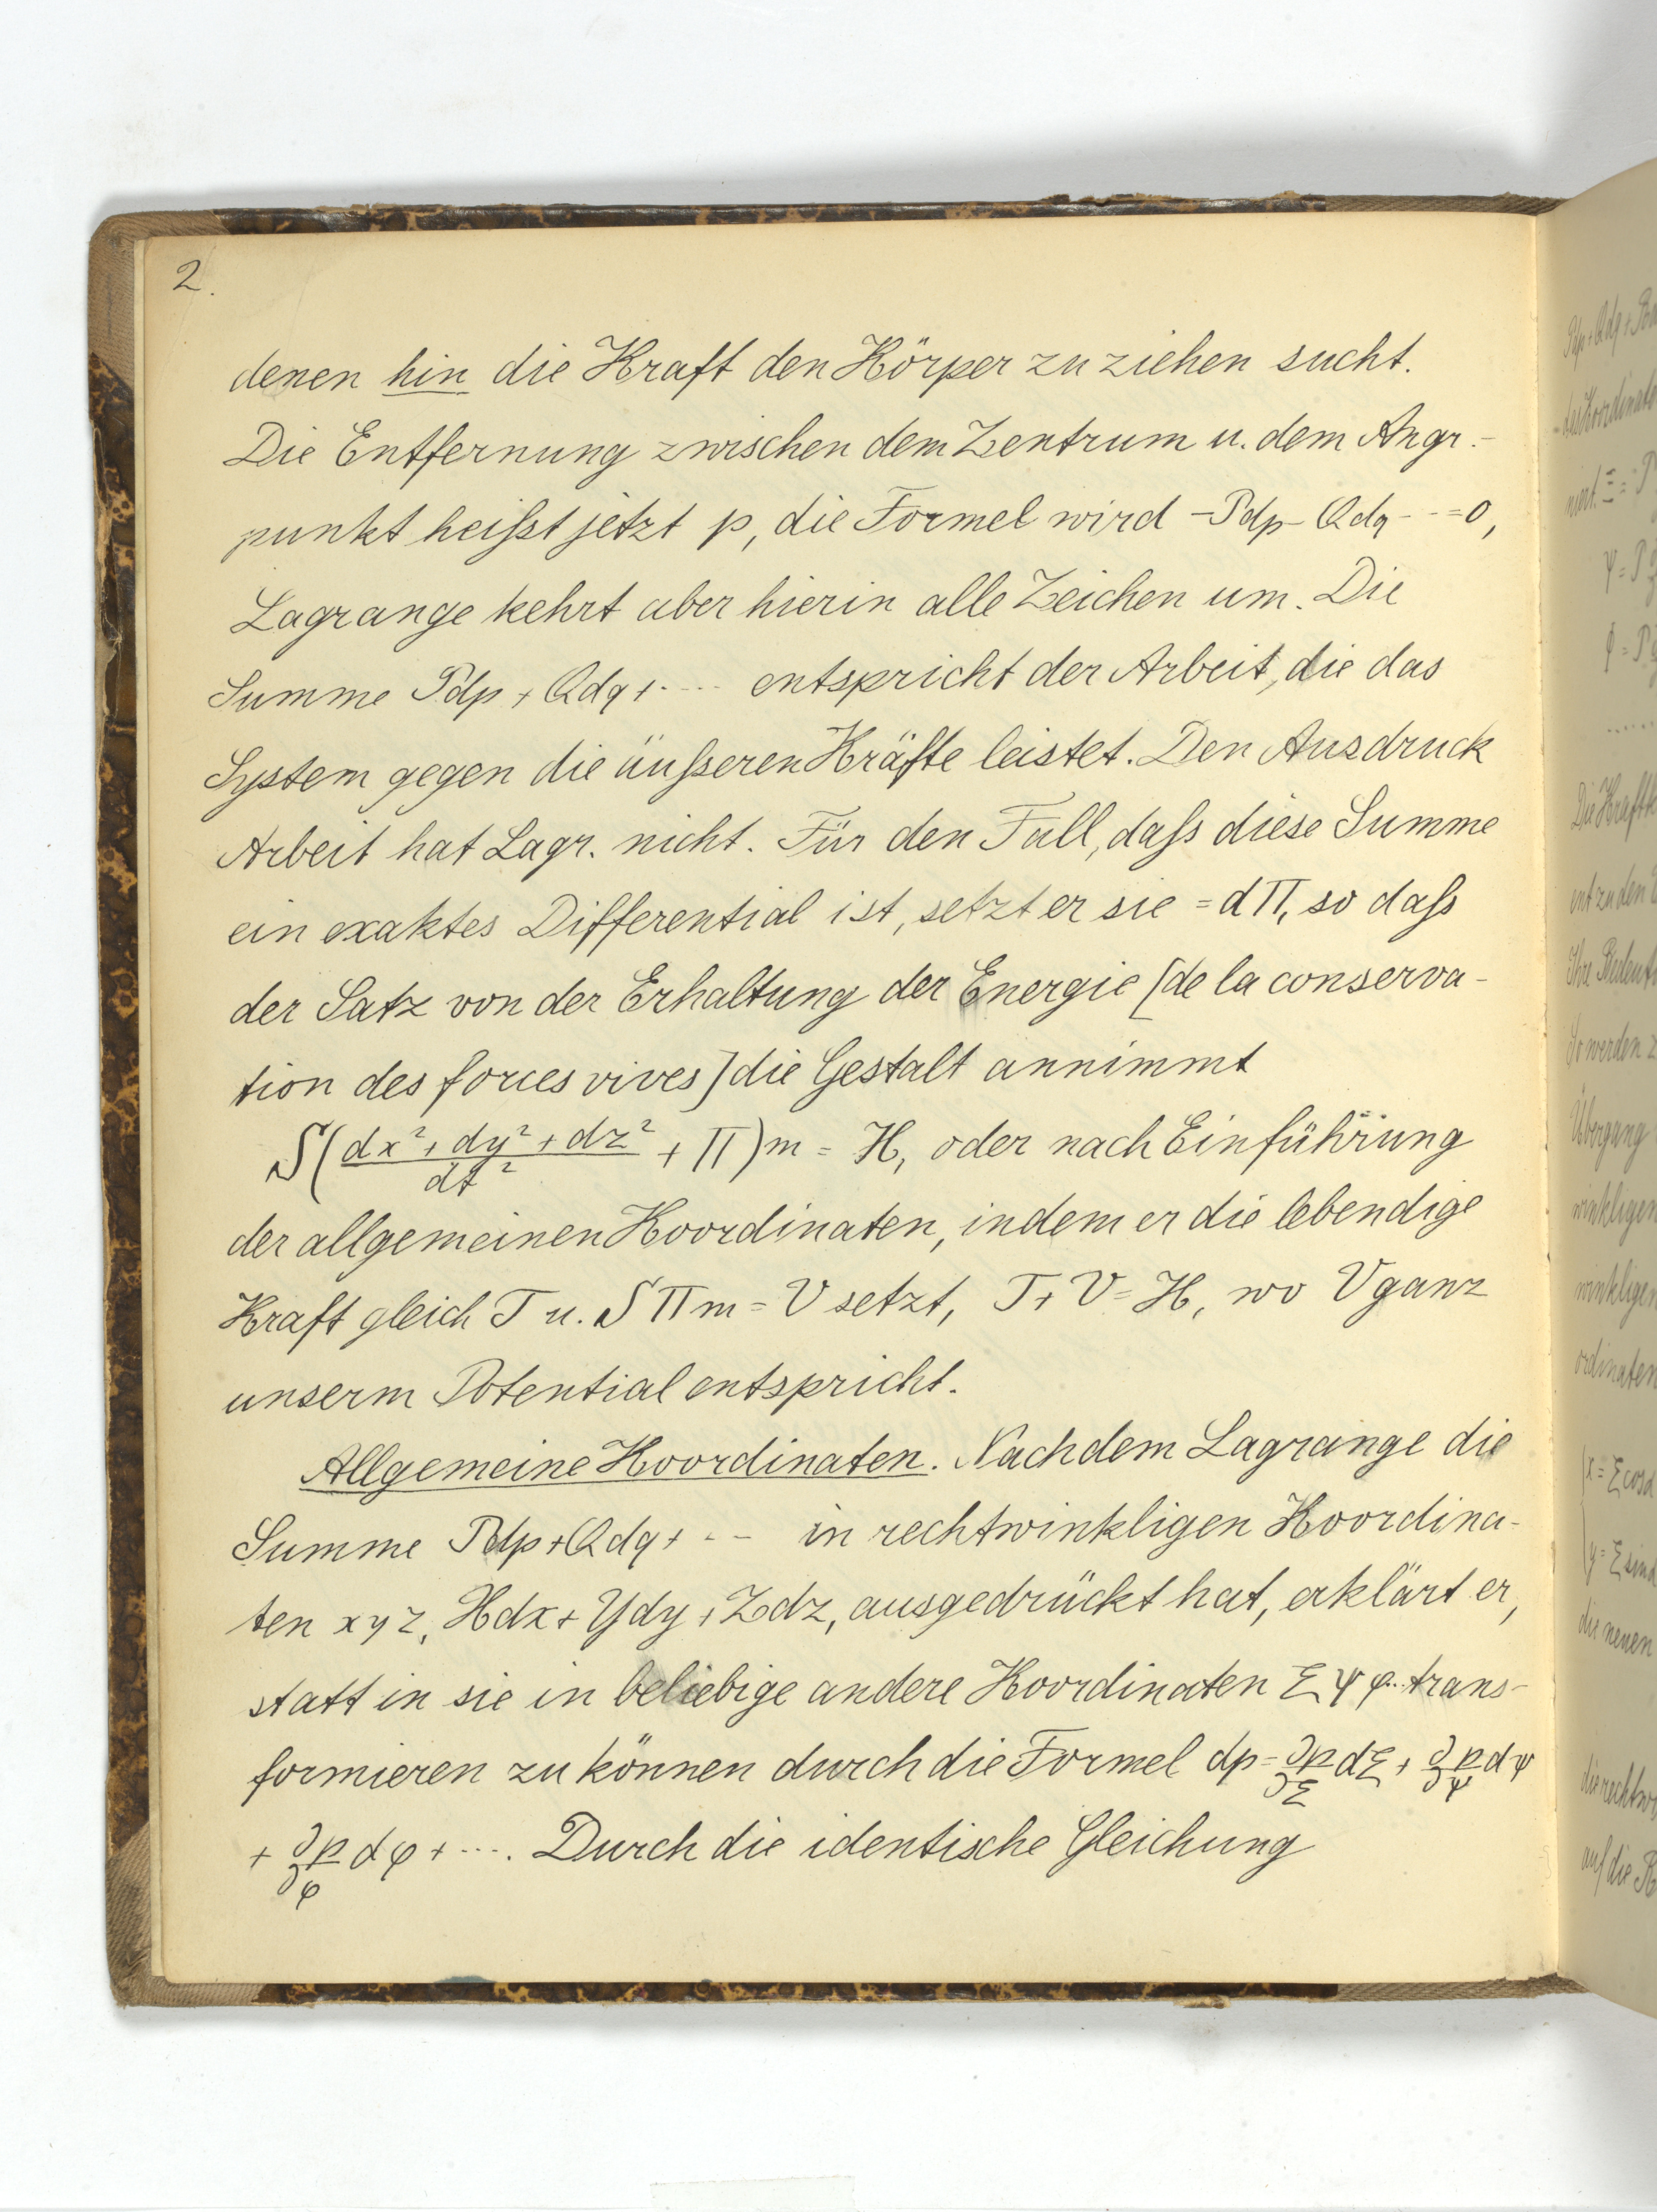 2.
denen hin die Kraft den Körper zu ziehen sucht.
Die Entfernung zwischen dem Zentrum u. dem Angr.-
punkt heißt jetzt p, die Formel wird -Pdp-Qdq---=0,
Lagrange kehrt aber hierin alle Zeichen um. Die
Summe Pdp + Qdq + .... entspricht der Arbeit, die das
System gegen die äußeren Kräfte leistet. Den Ausdruck
Arbeit hat Lagr. nicht. Für den Fall, daß diese Summe
ein exaktes Differential ist, setzt er sie = dΠ, so daß
der Satz von der Erhaltung der Energie [de la conserva-
tion des forces vives] die Gestalt annimmt
S((dx²+dy²+dz²)/dt² + Π)m = H, oder nach Einführung
der allgemeinen Koordinaten, indem er die lebendige
Kraft gleich T u. SΠm = V setzt, T+V=H, wo V ganz
unserm Potential entspricht.
Allgemeine Koordinaten. Nachdem Lagrange die
Summe Pdp+Qdq+ --- in rechtwinkligen Koordina-
ten x y z, Xdx+Ydy+Zdz, ausgedrückt hat, erklärt er,
statt in sie in beliebige andere Koordinaten ξ ψ φ... trans-
formieren zu können durch die Formel dp = ∂p/∂ξ dξ + ∂p/∂ψ dψ
+ ∂p/∂φ dφ + .... Durch die identische Gleichung